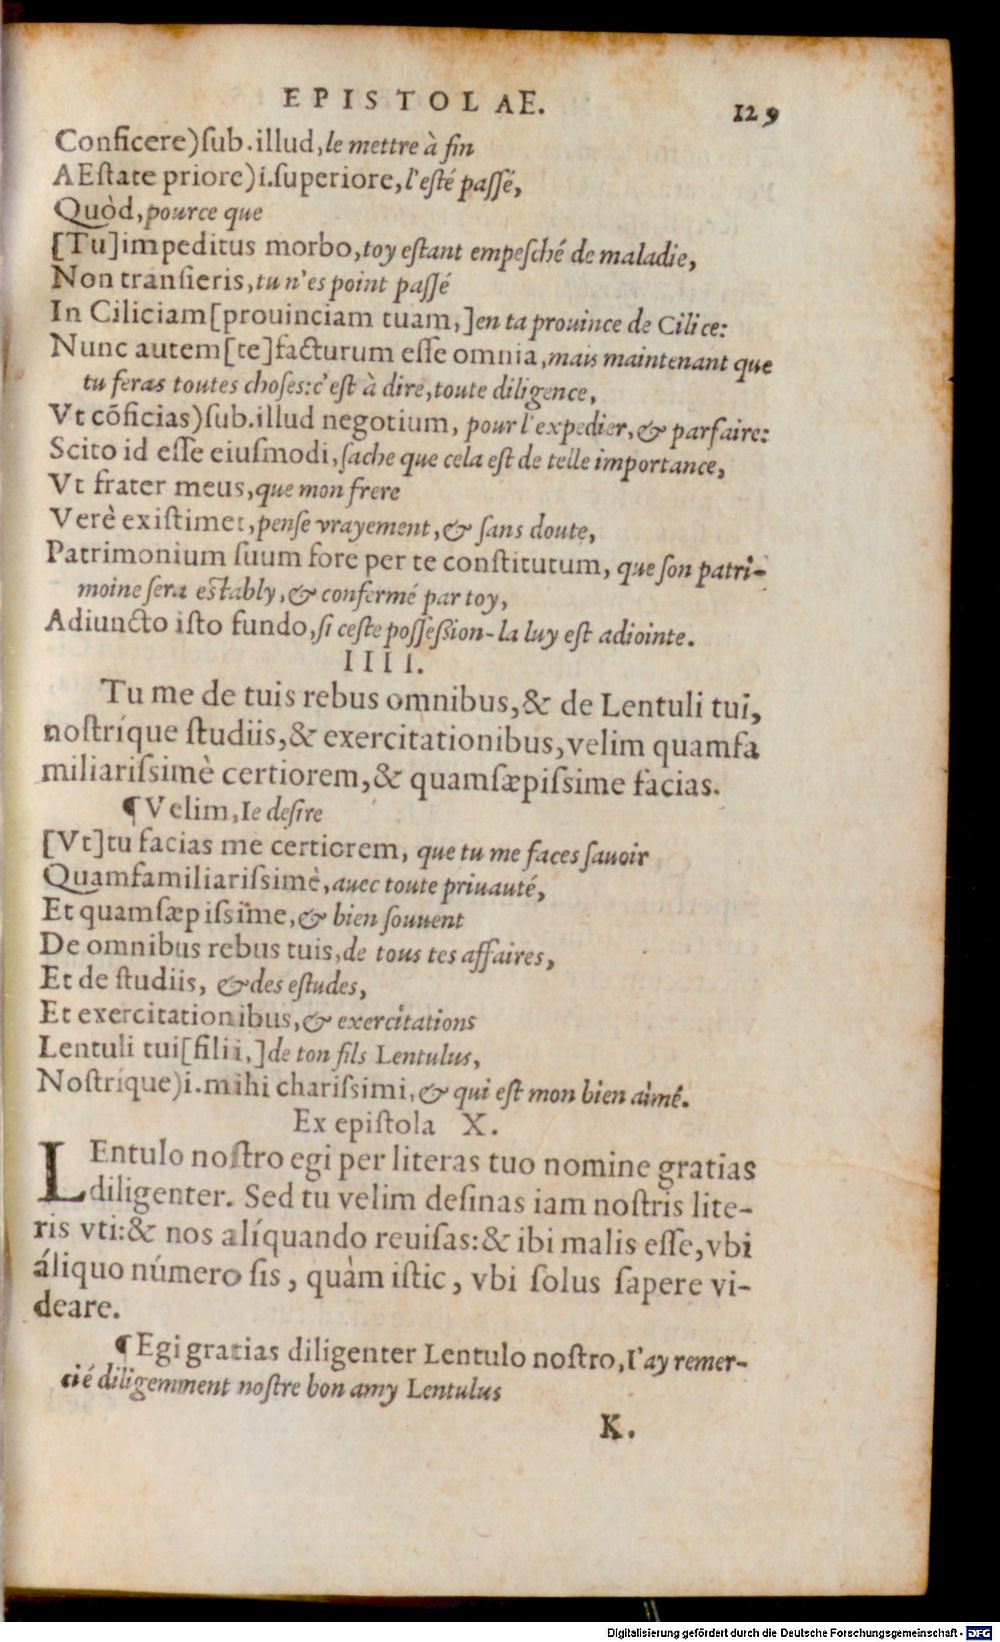 EPISTOLAE. 129
Conficere)ſub.illud,le mettre à fin
AEſtate priore)i.ſuperiore,l'eſté paſſé,
Quòd,pource que
[Tu]impeditus morbo,toy eſtant empeſché de maladie,
Non tranſieris,tu n'es point paſſé
In Ciliciam[prouinciam tuam,]en ta prouince de Cilice:
Nunc autem[te]facturum eſſe omnia,mais maintenant que
tu feras toutes choſes:c'eſt à dire,toute diligence,
Vt cōficias)ſub.illud negotium, pour l'expedier,& parfaire:
Scito id eſſe eiuſmodi,ſache que cela eſt de telle importance,
Vt frater meus,que mon frere
Verè exiſtimet,penſe vrayement,& ſans doute,
Patrimonium ſuum fore per te conſtitutum, que ſon patri-
moine ſera eſtably,& confermé par toy,
Adiuncto iſto fundo,ſi ceſte poſſeſſion-la luy eſt adiointe.
IIII.
Tu me de tuis rebus omnibus,& de Lentuli tui,
noſtríque ſtudiis,& exercitationibus,velim quamfa
miliariſsimè certiorem,& quamſæpiſsime facias.
¶Velim,Ie deſire
[Vt]tu facias me certiorem, que tu me faces ſauoir
Quamfamiliariſsimè,auec toute priuauté,
Et quamſæpiſsime,& bien ſouuent
De omnibus rebus tuis,de tous tes affaires,
Et de ſtudiis, & des eſtudes,
Et exercitationibus,& exercitations
Lentuli tui[filii,]de ton fils Lentulus,
Noſtríque)i.mihi chariſsimi,& qui eſt mon bien aimé.
Ex epiſtola X.
LEntulo noſtro egi per literas tuo nomine gratias
diligenter. Sed tu velim deſinas iam noſtris lite-
ris vti:& nos alíquando reuiſas:& ibi malis eſſe,vbi
áliquo número ſis, quàm iſtic, vbi ſolus ſapere vi-
deare.
¶Egi gratias diligenter Lentulo noſtro,I'ay remer-
cié diligemment noſtre bon amy Lentulus
K.
Digitalisierung gefördert durch die Deutsche Forschungsgemeinschaft - DFG